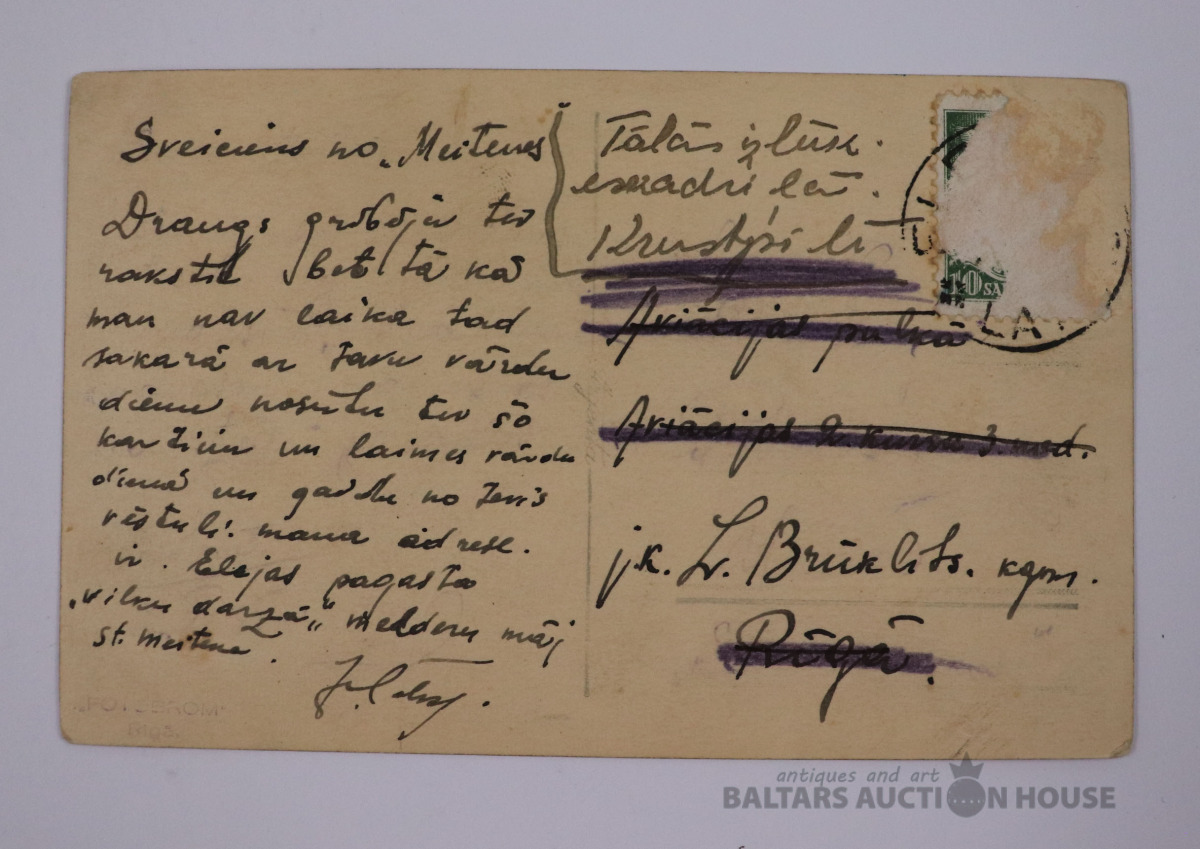 Sveiciens no „Meitenes
Draugs gribēju tev
rakstīt bet tā kā
man nav laika tad
sakarā ar tavu vārdu
dienu nosūtu tev šo
kartiņu un laimes vārdu
dienā un gaidu no tevis
vēstuli. mana adrese.
ir. Elejas pagasta
„vilku darzā„ melderu māj
st. Meitene.
Tālās izlūk.
eskadriļā.
Krustpilī
Aviācijas pulkā
Aviācijas 2 kursa 3. nod.
j.k. Br. Brūklits. kgm.
Rīgā.
10 SA
LA
antiques and art
BALTARS AUCTION HOUSE